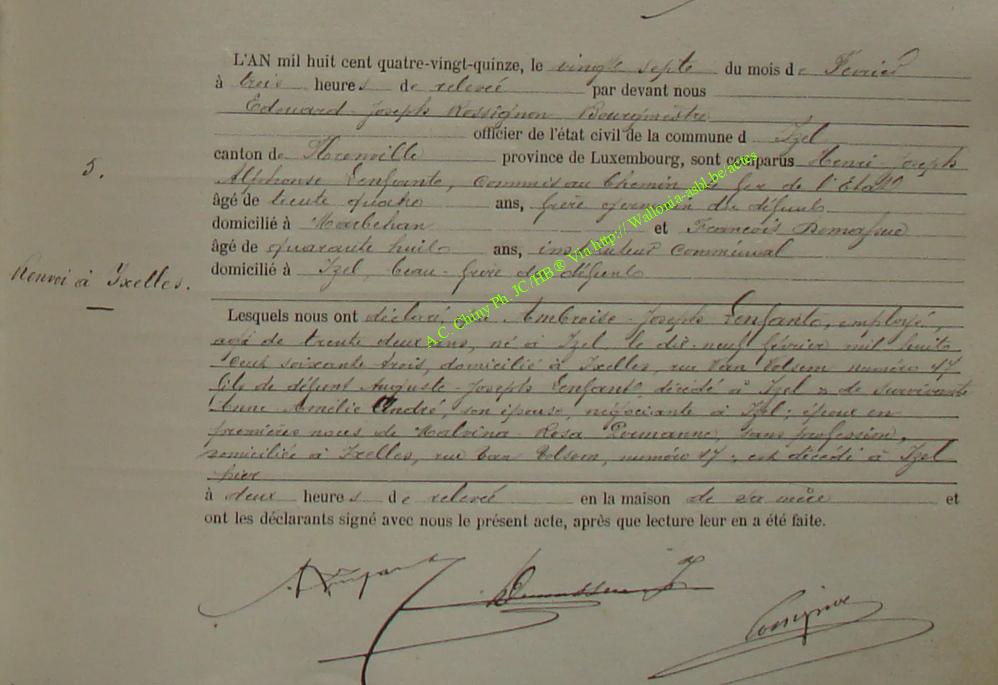 L'AN mil huit cent quatre-vingt-quinze, le vingt sept du mois de Février
à trois heures de relevée par devant nous
Edouard-Joseph Rossignon Bourgmestre
officier de l'état civil de la commune d Izel
canton de province de Luxembourg, sont comparus Henri-Joseph
Alphonse Lenfant, commis au Chemin de fer de l'Etat
âgé de trente quatre ans, frère germain du défunt
domicilié à Marbehan et François
âgé de quarante huit ans, instituteur communal
domicilié à Izel, beau-frère du défunt
5.
Renvoi à Ixelles.
Lesquels nous ont déclaré que Ambroise-Joseph Lenfant, employé,
âgé de trente deux ans, né à Izel le dix-neuf février mil huit
cent soixante trois, domicilié à Ixelles, rue Van Volsem numéro 47
fils de défunt Auguste-Joseph Lenfant décédé à Izel & de survivante
Anne Amélie André, son épouse, négociante à Izel; époux en
premières noces de Malvina-Rosa sans profession,
domiciliée à Ixelles, rue Van Volsem, numéro 47; est décédé à Izel
hier
à deux heures de relevée en la maison de sa mère et
ont les déclarants signé avec nous le présent acte, après que lecture leur en a été faite.
A.C. Chiny Ph. JC/HB ® Vin http:// Wallonia-asbl.be/actes
Rossignon